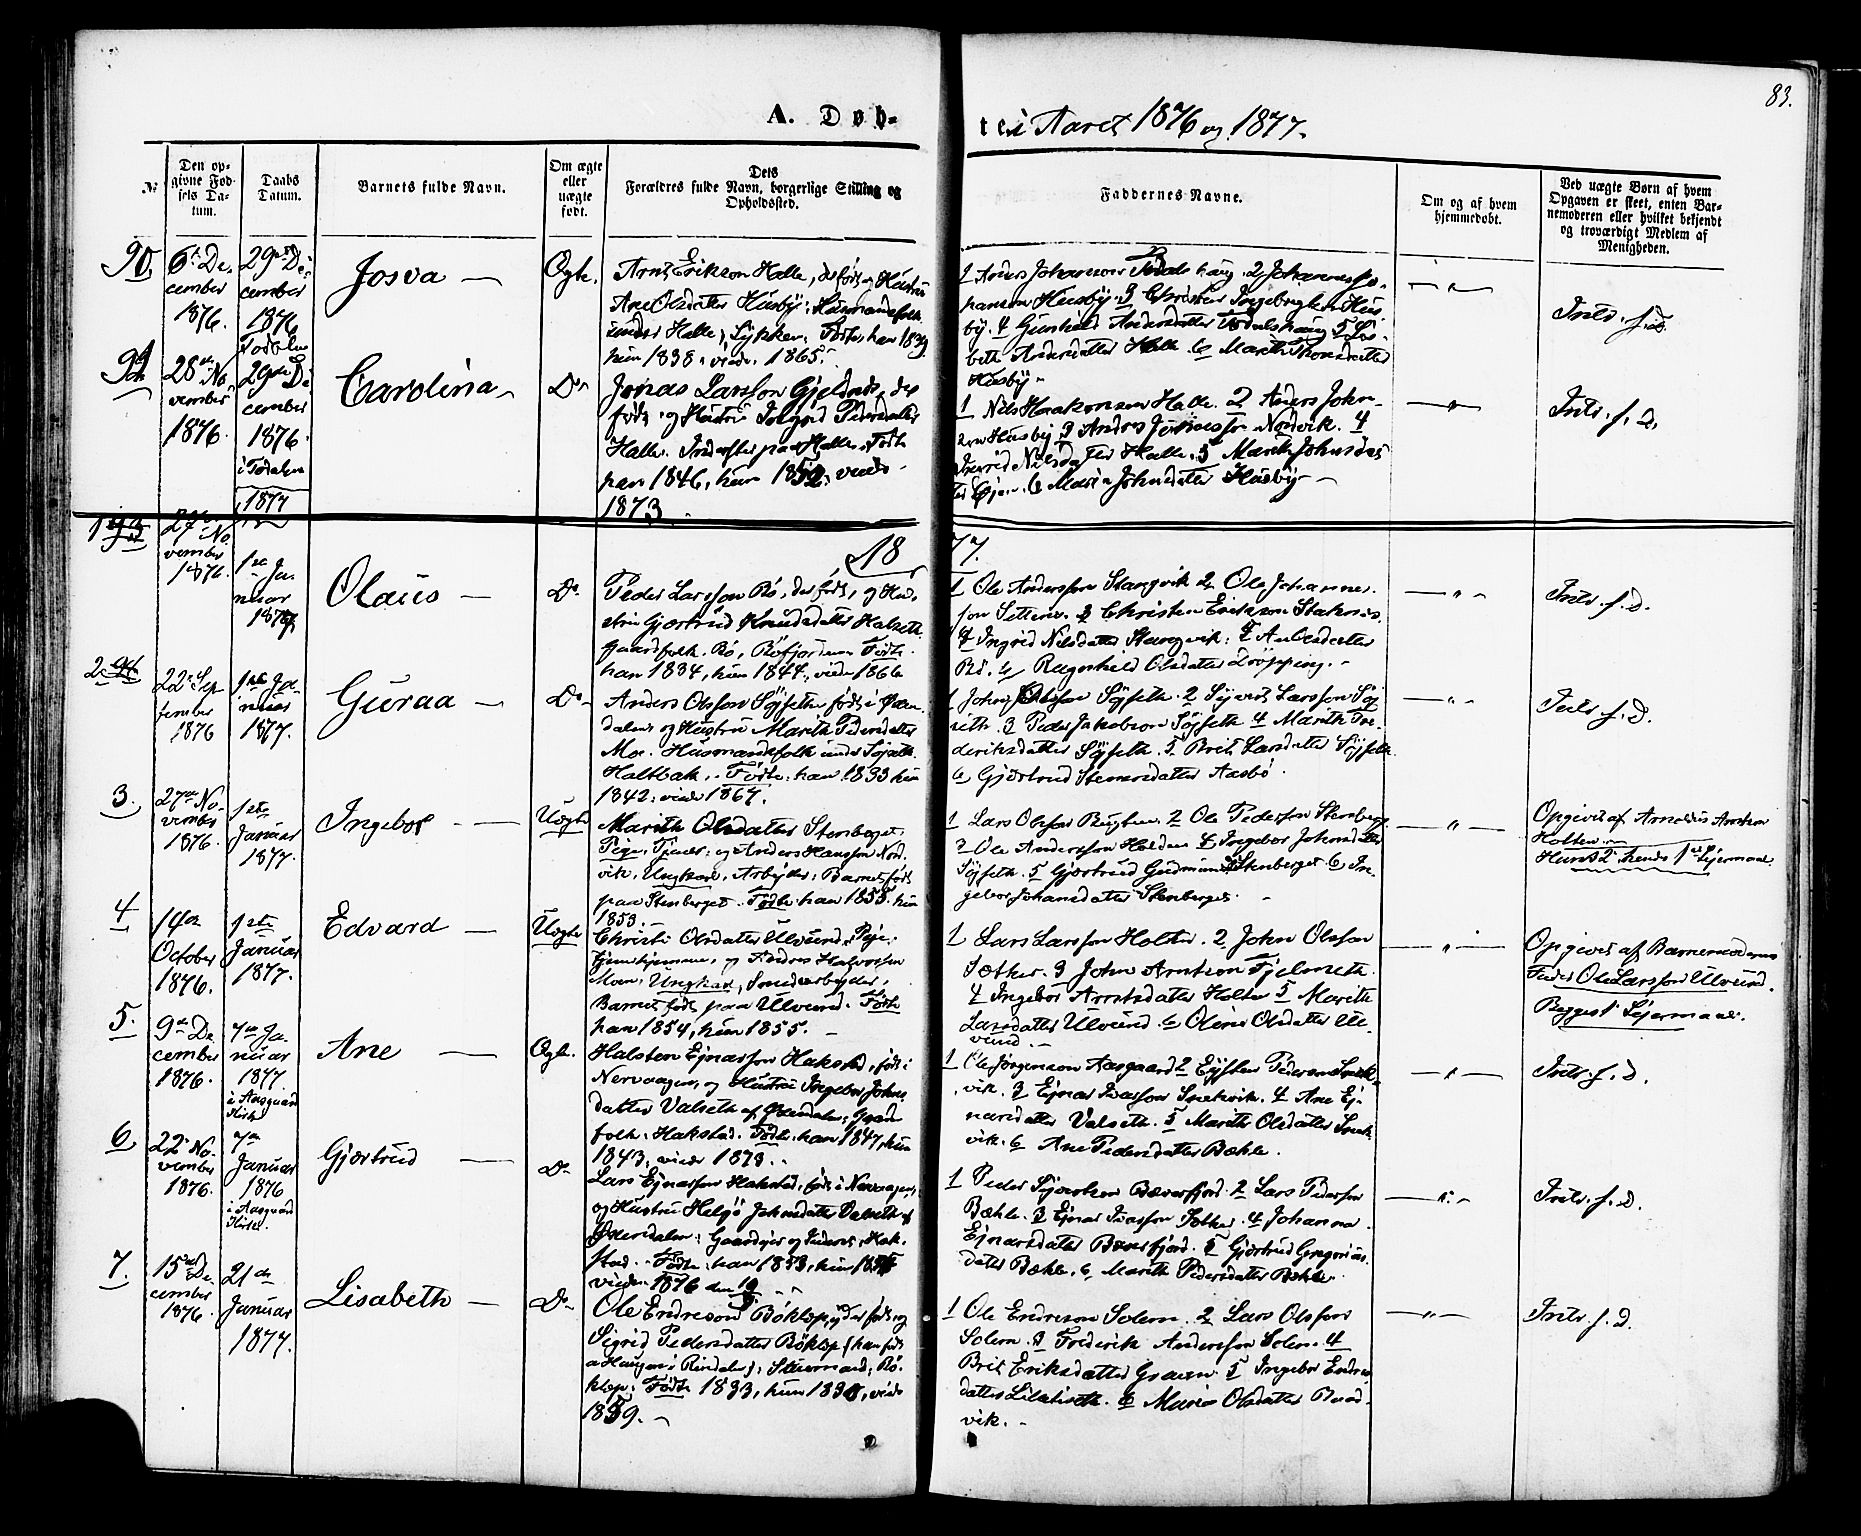 83.
A. Døb-
te i Aaret 1876 og 1877.
No
Den op-
givne Fød-
sels Da-
tum.
Daabs
Datum.
Barnets fulde Navn.
Om ægte
eller
uægte
født.
Dets
Forældres fulde Navn, borgerlige Stilling og
Opholdssted.
Faddernes Navne.
Om og af hvem
hjemmedøbt.
Ved uægte Børn af hvem
Opgaven er skeet, enten Bar-
nemoderen eller hvilket bekjendt
og troværdigt Medlem af
Menigheden.
90.
6te De-
cember
1876.
29de De-
cember
1876
Todalen
Josva
Ægte.
Arnt Erikson Halle, der født og Hustru
Ane Olsdatter Husby; Husmandsfolk
under Halle, Lykken. Født han 1839
hun 1838; viede 1865.
1 Anders Johansson Todalshaug. 2 Johannes Jo-
hanson Husby. 3 Christen Ingebrigtsen Hus-
by. 4 Gunhild Andersdatter Todalshaug 5 Lis-
beth Andersdatter Halle 6 Marith Thorsdatter
Husby
28de No-
vember
1876.
29de De-
cember
1876.
i Todalen
Carolina
Do
Jonas Larsson Gjeldnes, der
født, og Hustru Ingrid Pedersdatter
Halle. Inderster paa Halle. Født
han 1846, hun 1852, viede
1873.
1 Nils Haakonson Halle. 2 Anders John-
son Husby 3 Anders Jonasson Nordvik. 4
Ingrid Nilsdatter Halle. 5 Marith Johnsdat-
ter Øjen. 6 Maria Johnsdatter Husby
1877
1
27de No-
vember
1876.
1ste Ja-
nuar
1877
Olaus
Do
1877.
Peder Larsson Bø, der født, og Hu-
stru Gjertrud Knudsdatter Halset
Gaardfolk. Bø, Bøfjorden. Født
han 1834, hun 1844, viede 1866
1 Ole Andersson Stangvik 2 Ole Johannes-
son Settem. 3 Christen Erikson
4 Ingrid Nilsdatter Stangvik. 5 Ane Olsdatter
Bø. 6 Ragnhild Olsdatter Drøpping.
2
22de Sep-
tember
1876
1ste Ja-
nuar
1877.
Guraa
Do
Anders Olsson Søjseth født i Øxen-
dalen og Hustru Marith Pedersdatter
Moe. Husmandsfolk under Søjseth
Holtbak. Født: han 1833 hun
1842; viede 1867.
1 John Olsson Søjseth. 2 Sjvert Larsson Søj-
seth. 3 Peder Jakobson Søjseth 4 Marith Fre-
deriksdatter Søjseth. 5 Brit Larsdatter Søjseth
6 Gjertrud Steinersdatter Aasbø.
3.
27de No-
vember
1876.
1ste
Januar
1877.
Ingebor
Uægte
Marith Olsdatter Stenberget
Pige, Tjener; og Anders Hansson Nord-
vik, Ungkarl, Arbejder; Barnet født
paa Stenberget. Født han 1855. hun
1853.
1 Lars Olsson 2 Ole Pederson Stenberget
3 Ole Andersson Holden 4 Ingebor Johnsdatter
Søjseth. 5 Gjertrud Gudmundsd. Stenberget 6 In-
gebor Johansdatter Stenberget.
Opgivet af Arnt Arntson
Holten
Hans 2det hendes 1ste Lejermaal
4
14de
October
1876.
1ste
Januar
1877.
Edvard
Uægte
Christi Olsdatter Ulvund, Pige,
hjemme, og Peder Halvorsen
Moen, Ungkarl, Smedearbejder,
Barnet født paa Ulvund. Født
han 1854, hun 1855.
1 Lars Larsson Holten. 2 John Olsson
Sæther. 3 John Arntson Fjelseth.
4 Ingebor Arntsdatter Holten 5 Marith
Larsdatter Ulvund. 6 Oline Olsdatter Ul-
vund.
Opgivet af Barnemoderens
Fader Ole Larsson Ulvund.
Begges 1ste Lejermaal.
5.
9de De-
cember
1876.
7de Ja-
nuar
1877.
i Aasgaard
Kirke
Ane
Ægte.
Halsten Ejnarson Hakstad, født i
Nervaagen, og Hustru Ingebor Johns-
datter Valseth af Øxendalen, Gaard-
folk: Hakstad. Født: han 1847, hun
1843; viede 1873.
1 Ole Jørgenson Aasgaard 2 Eysten Pederson Snek-
vik. 3 Ejnar Ivarson Snekvik. 4 Ane Ej-
narsdatter Valseth. 5 Marith Olsdatter Snek-
vik. 6 Ane Pedersdatter Bæhle.
6
22de No-
vember
1876.
7de
Januar
1876
i Aasgaard
Kirke.
Gjertrud
Do
Lars Ejnarson Hakstad, født i Nervaagen,
og Hustru Helga Johnsdatter Valseth af
Øxendalen; Gaardejer og Inderst, Hak-
stad. Født: han 1853, hun
viede 1876 den
1 Peder Sjvertsen Bæverfjord. 2 Lars Pederson
Bæhle. 3 Ejnar Ivarson Sæther. 4 Johanna
Ejnarsdatter Bæverfjord. 5 Gjertrud Gregorius-
datter Bæhle. 6 Marith Pedersdatter Bæhle.
7.
15de De-
cember
1876
21de
Januar
1877.
Lisabeth
Do
Ole Endreson Böklep, der født og
Sigrid Pedersdatter Böklep (hun født
a Haugen i Rindalen); Husmand; Bö-
klep; Født 1833, hun 1838, viede
1859.
1 Ole Endreson Solem. 2 Lars Olsson
Solem. 3 Frederik Andersson Solem. 4
Brit Eriksdatter Graven. 5 Ingebor Endres-
datter. 6 Marie Olsdatter Bred-
vik.